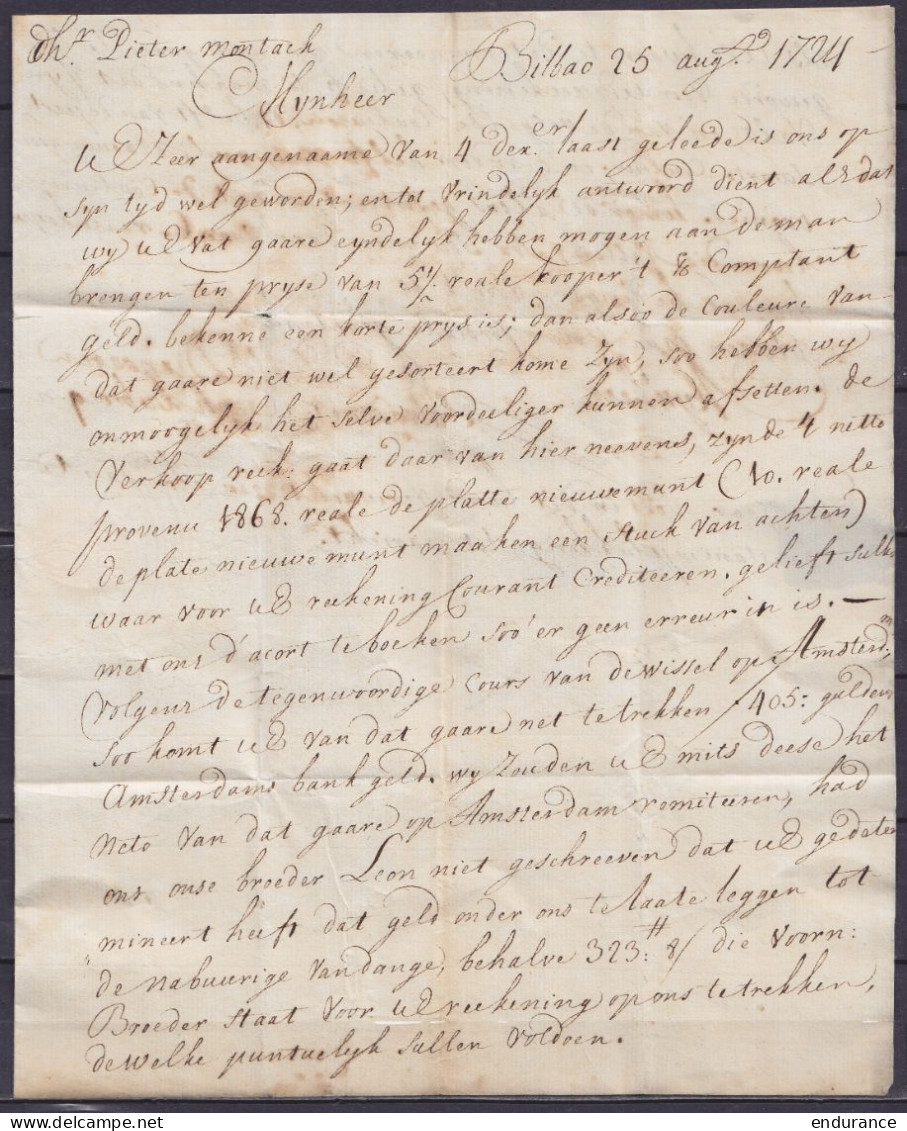 dhr. Pieter montack Bilbao 25 augt. 1724
Mynheer
UE Zeer aangenaame van 4 dexer. laast geleede is ons op
syn tyd wel geworden; en tot vrindelyk antwoord dient als dat
wy UE vat gaare eyndelyk hebben mogen aan de man
brengen ten pryse van 5½ reale kooper 't ℔ Comptant
geld. bekenne een korte prys is; dan alsoo de Couleure van
dat gaare niet wel gesorteert kome Zyn, soo hebben wy
onmoogelyk het selve voordeeliger kunnen afsetten. de
Verkoop reck: gaat daar van hier neevens, zynde 't nette
provenu 1868. reale de platte nieuwe munt (10. reale
de plate nieuwe munt maaken een stuck van achten)
waar voor UE reekening Courant Crediteeren. gelieft sulks
met ons d'acort te boeken soo 'er geen erreur in is. —
Volgens de tegenwoordige cours van de wissel op Amsterd:
soo komt UE van dat gaare net te trekken 405: guldens
Amsterdams bank geld. wy zouden UE mits deese het
neto van dat gaare op Amsterdam remiteeren, had
ons onse broeder Leon niet geschreeven dat UE gedeter
mineert heeft dat geld onder ons te laate leggen tot
de nabuurige Vandange, behalve 323: 8/ die voorn:
Broeder staat voor UE reekening op ons te trekken,
dewelke puntuelyk sullen voldoen.
endurance